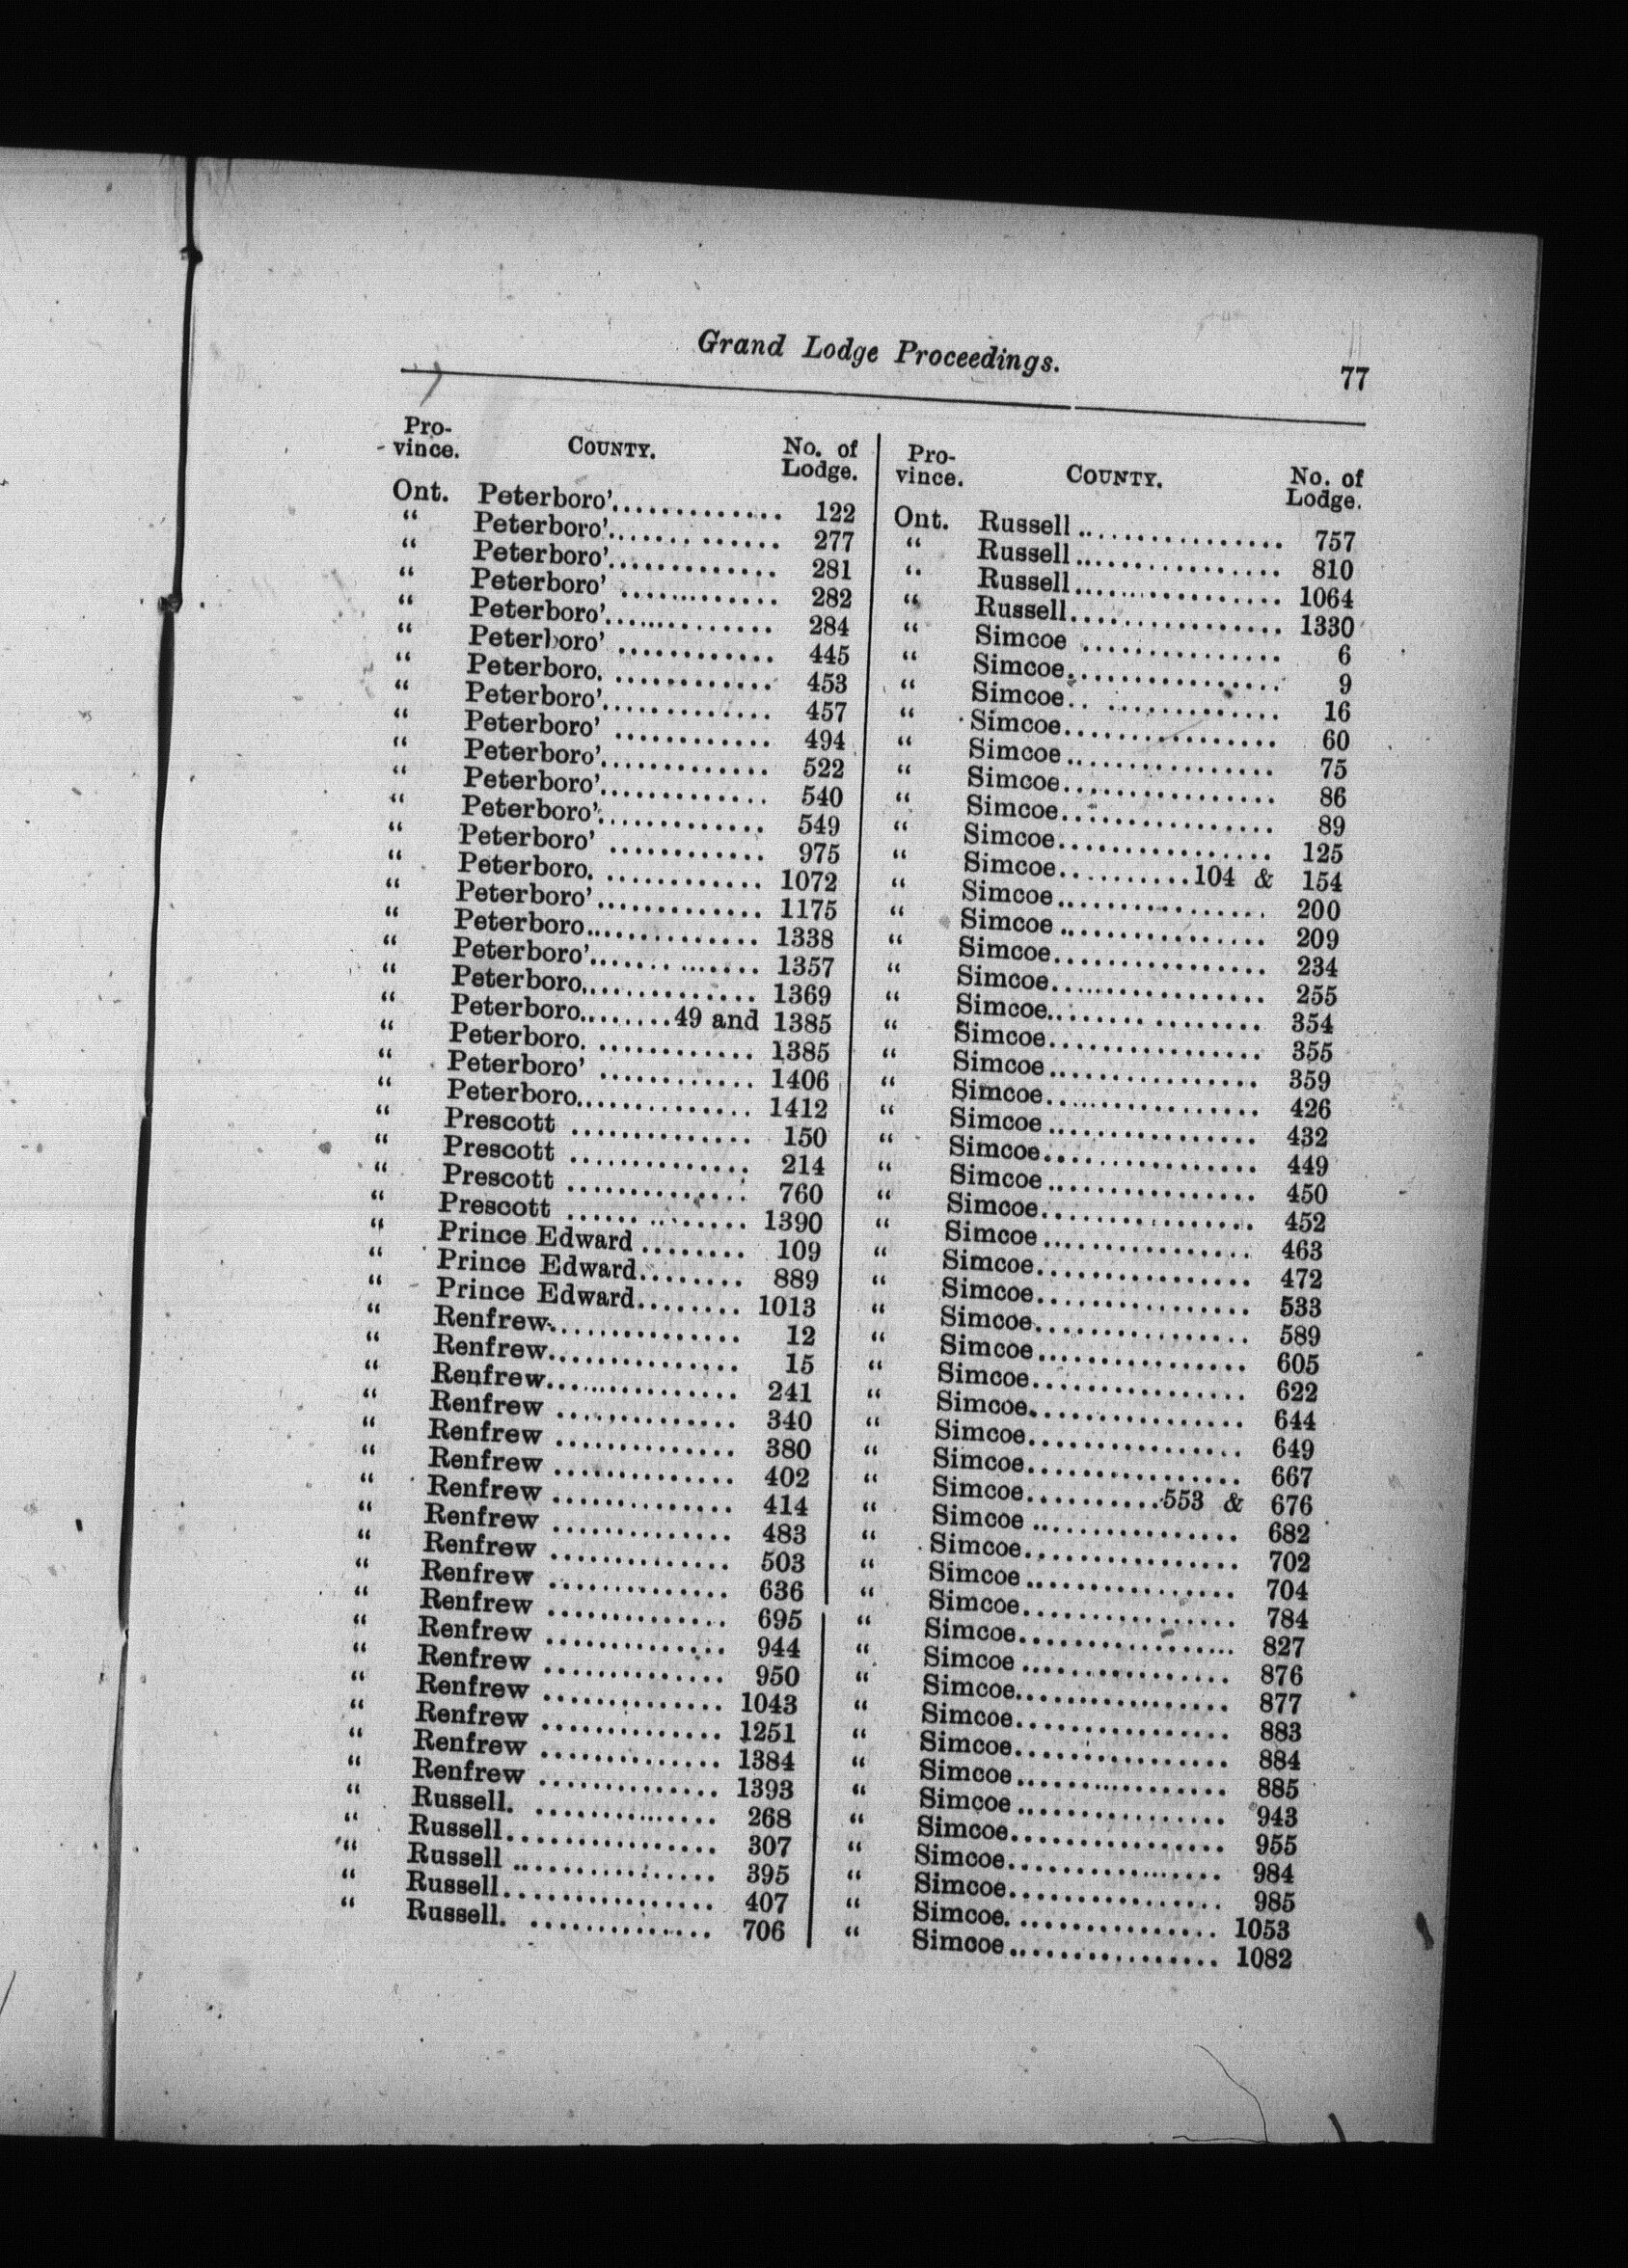 Grand Lodge Proceedings.
77
Pro-
vince.
COUNTY.
No. of
Lodge.
Ont. Peterboro'............. 122
“ Peterboro'............. 277
“ Peterboro'............. 281
“ Peterboro' ............ 282
“ Peterboro'............. 284
“ Peterboro' ............ 445
“ Peterboro. ............ 453
“ Peterboro'............. 457
“ Peterboro' ............ 494
“ Peterboro'............. 522
“ Peterboro'............. 540
“ Peterboro'............. 549
“ Peterboro' ............ 975
“ Peterboro. ............ 1072
“ Peterboro'............. 1175
“ Peterboro.............. 1338
“ Peterboro'............. 1357
“ Peterboro.............. 1369
“ Peterboro........49 and 1385
“ Peterboro. ............ 1385
“ Peterboro' ............ 1406
“ Peterboro.............. 1412
“ Prescott .............. 150
“ Prescott .............. 214
“ Prescott .............. 760
“ Prescott .............. 1390
“ Prince Edward ........ 109
“ Prince Edward........ 889
“ Prince Edward........ 1013
“ Renfrew............... 12
“ Renfrew............... 15
“ Renfrew............... 241
“ Renfrew .............. 340
“ Renfrew .............. 380
“ Renfrew .............. 402
“ Renfrew .............. 414
“ Renfrew .............. 483
“ Renfrew .............. 503
“ Renfrew .............. 636
“ Renfrew .............. 695
“ Renfrew .............. 944
“ Renfrew .............. 950
“ Renfrew .............. 1043
“ Renfrew .............. 1251
“ Renfrew .............. 1384
“ Renfrew .............. 1393
“ Russell. .............. 268
“ Russell................ 307
“ Russell ............... 395
“ Russell................ 407
“ Russell. .............. 706
Pro-
vince.
COUNTY.
No. of
Lodge.
Ont. Russell ................ 757
“ Russell ................ 810
“ Russell................ 1064
“ Russell................ 1330
“ Simcoe ............... 6
“ Simcoe................ 9
“ Simcoe.. ............. 16
“ Simcoe................ 60
“ Simcoe................ 75
“ Simcoe................ 86
“ Simcoe................ 89
“ Simcoe................ 125
“ Simcoe..........104 & 154
“ Simcoe................ 200
“ Simcoe ................ 209
“ Simcoe................ 234
“ Simcoe................ 255
“ Simcoe........ ........ 354
“ Simcoe................ 355
“ Simcoe................ 359
“ Simcoe................ 426
“ Simcoe ................ 432
“ Simcoe................ 449
“ Simcoe ................ 450
“ Simcoe................ 452
“ Simcoe ................ 463
“ Simcoe................ 472
“ Simcoe................ 533
“ Simcoe................ 589
“ Simcoe ................ 605
“ Simcoe................ 622
“ Simcoe................ 644
“ Simcoe................ 649
“ Simcoe................ 667
“ Simcoe..........553 & 676
“ Simcoe ................ 682
“ Simcoe................ 702
“ Simcoe ................ 704
“ Simcoe................ 784
“ Simcoe................ 827
“ Simcoe ................ 876
“ Simcoe................ 877
“ Simcoe................ 883
“ Simcoe................ 884
“ Simcoe ................ 885
“ Simcoe ................ 943
“ Simcoe................ 955
“ Simcoe................ 984
“ Simcoe................ 985
“ Simcoe................ 1053
“ Simcoe ................ 1082